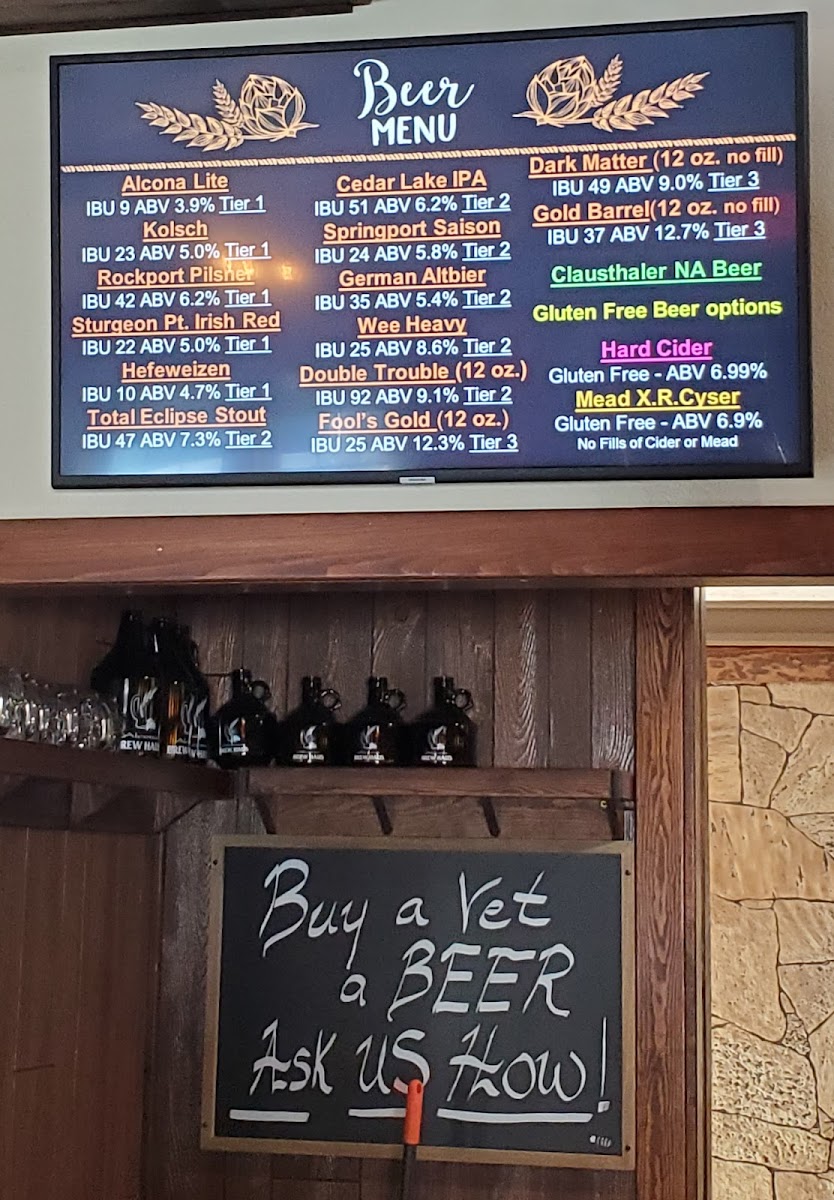 Beer
MENU
Alcona Lite
IBU 9 ABV 3.9% Tier 1
Kolsch
IBU 23 ABV 5.0% Tier 1
Rockport Pilsner
IBU 42 ABV 6.2% Tier 1
Sturgeon Pt. Irish Red
IBU 22 ABV 5.0% Tier 1
Hefeweizen
IBU 10 ABV 4.7% Tier 1
Total Eclipse Stout
IBU 47 ABV 7.3% Tier 2
Cedar Lake IPA
IBU 51 ABV 6.2% Tier 2
Springport Saison
IBU 24 ABV 5.8% Tier 2
German Altbier
IBU 35 ABV 5.4% Tier 2
Wee Heavy
IBU 25 ABV 8.6% Tier 2
Double Trouble (12 oz.)
IBU 92 ABV 9.1% Tier 2
Fool's Gold (12 oz.)
IBU 25 ABV 12.3% Tier 3
Dark Matter (12 oz. no fill)
IBU 49 ABV 9.0% Tier 3
Gold Barrel(12 oz. no fill)
IBU 37 ABV 12.7% Tier 3
Clausthaler NA Beer
Gluten Free Beer options
Hard Cider
Gluten Free - ABV 6.99%
Mead X.R.Cyser
Gluten Free - ABV 6.9%
No Fills of Cider or Mead
BREW HAUS
BREW HAUS
BREW HAUS
BREW HAUS
Buy a Vet
a BEER
Ask US How!